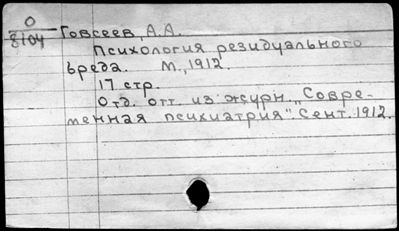 О
8104
Говсеев, А.А.
Психология резидуального
бреда. М., 1912.
17 стр.
Отд. отт. из журн. „Совре-
менная психиатрия". Сент. 1912.